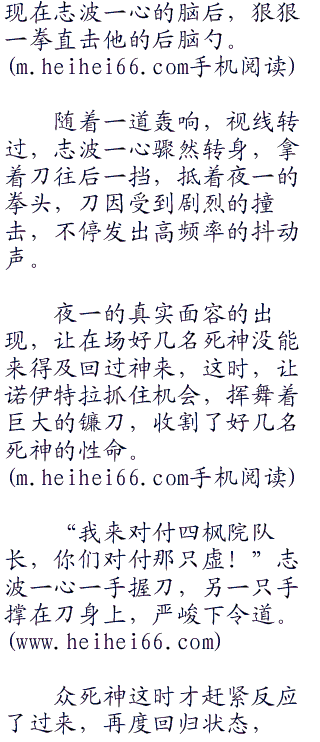 现在志波一心的脑后，狠狠
一拳直击他的后脑勺。
(m.heihei66.com手机阅读)
随着一道轰响，视线转
过，志波一心骤然转身，拿
着刀往后一挡，抵着夜一的
拳头，刀因受到剧烈的撞
击，不停发出高频率的抖动
声。
夜一的真实面容的出
现，让在场好几名死神没能
来得及回过神来，这时，让
诺伊特拉抓住机会，挥舞着
巨大的镰刀，收割了好几名
死神的性命。
(m.heihei66.com手机阅读)
“我来对付四枫院队
长，你们对付那只虚！”志
波一心一手握刀，另一只手
撑在刀身上，严峻下令道。
(www.heihei66.com)
众死神这时才赶紧反应
了过来，再度回归状态，